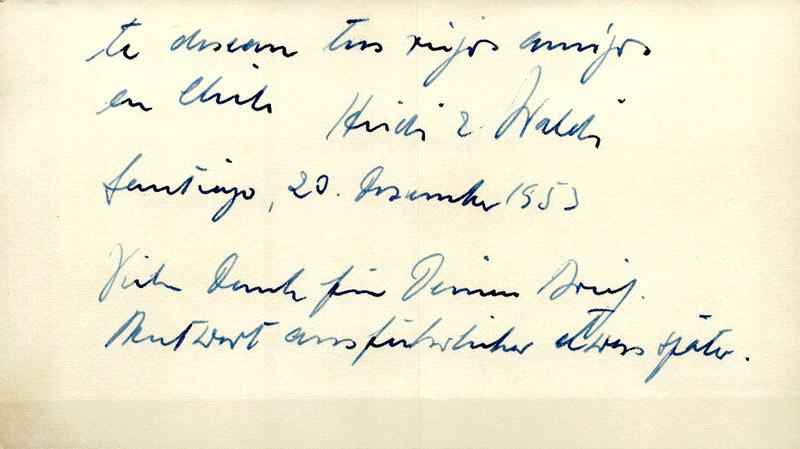 te desean tus viejos amigos
en Chile Heidi & Waldi
Santiago, 20. Dezember 1953
Vielen Dank für Deinen Brief.
Antwort ausführlicher etwas später.